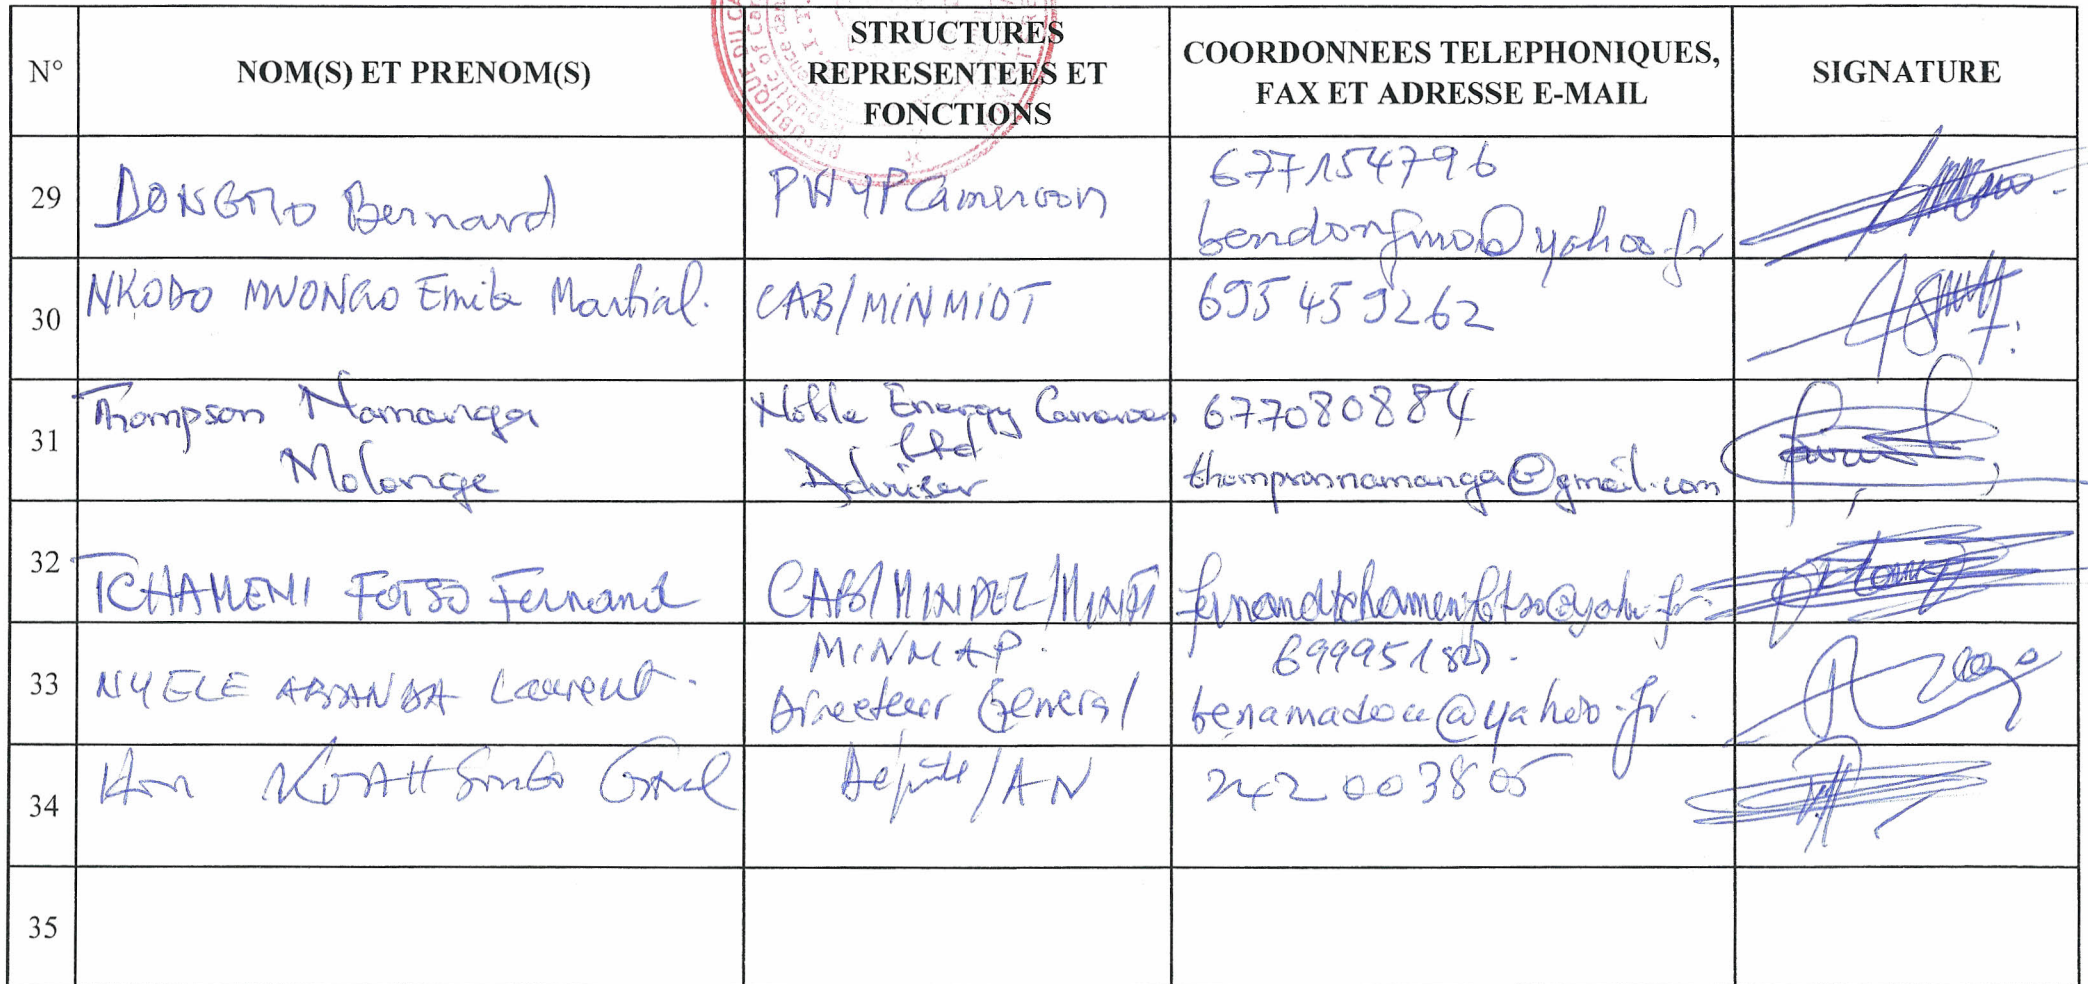 REPUBLIQUE DU CA
Republic of Cam
N°
NOM(S) ET PRENOM(S)
STRUCTURES
REPRESENTEES ET
FONCTIONS
COORDONNEES TELEPHONIQUES,
FAX ET ADRESSE E-MAIL
SIGNATURE
29
DONGMO Bernard
PWYP Cameroon
677154796
bendongmo@yahoo.fr
30
NKODO MVONGO Emile Martial.
CAB/MINMIDT
695459262
31
Thompson Namanga
Molonge
Noble Energy Cameroon
Ltd
Adviser
677080884
thompsonnamanga@gmail.com
32
TCHAMENI FOTSO Fernand
fernandtchamenifotso@yahoo.fr
33
NYELE ABANDA Laurent.
MINMAP.
Directeur General
benamadou@yahoo.fr.
34
Hon KOAH
Député/AN
242003805
35